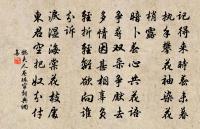 記得來時春未暮
執手攀花袖染花
梢露
暗卜春心共花語
爭尋雙朵爭先去
多情因甚相辜負
輕拆輕離欲向誰
分訴
淚濕海棠花枝處
東君空把奴分付
魏夫人卷珠簾